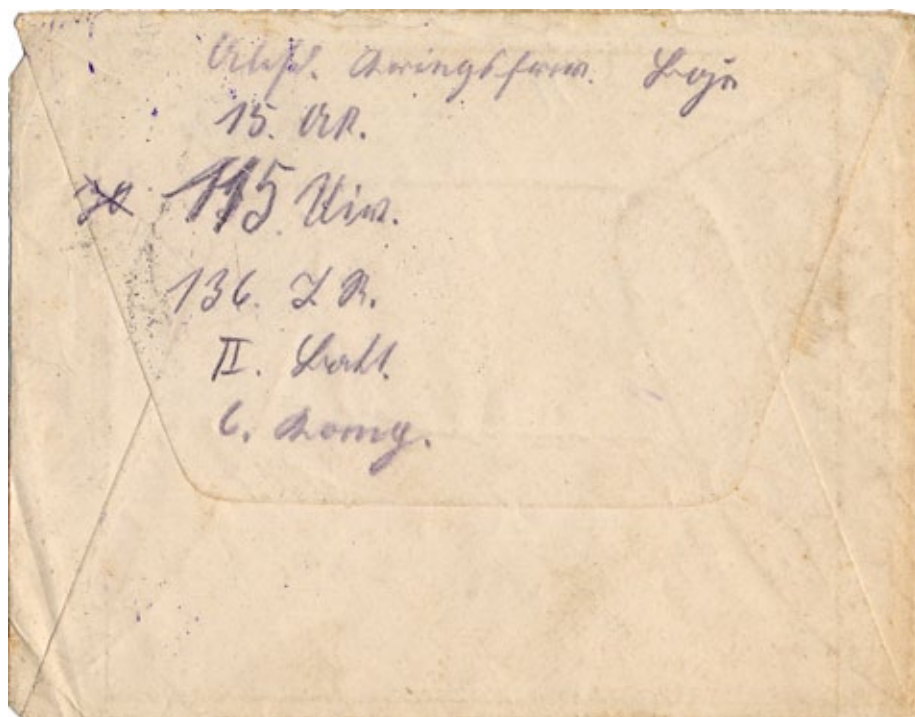 Absd. Kriegsfreiw. Boje
15. AK.
115 Div.
136. I R.
II. Batl.
6. Komp.